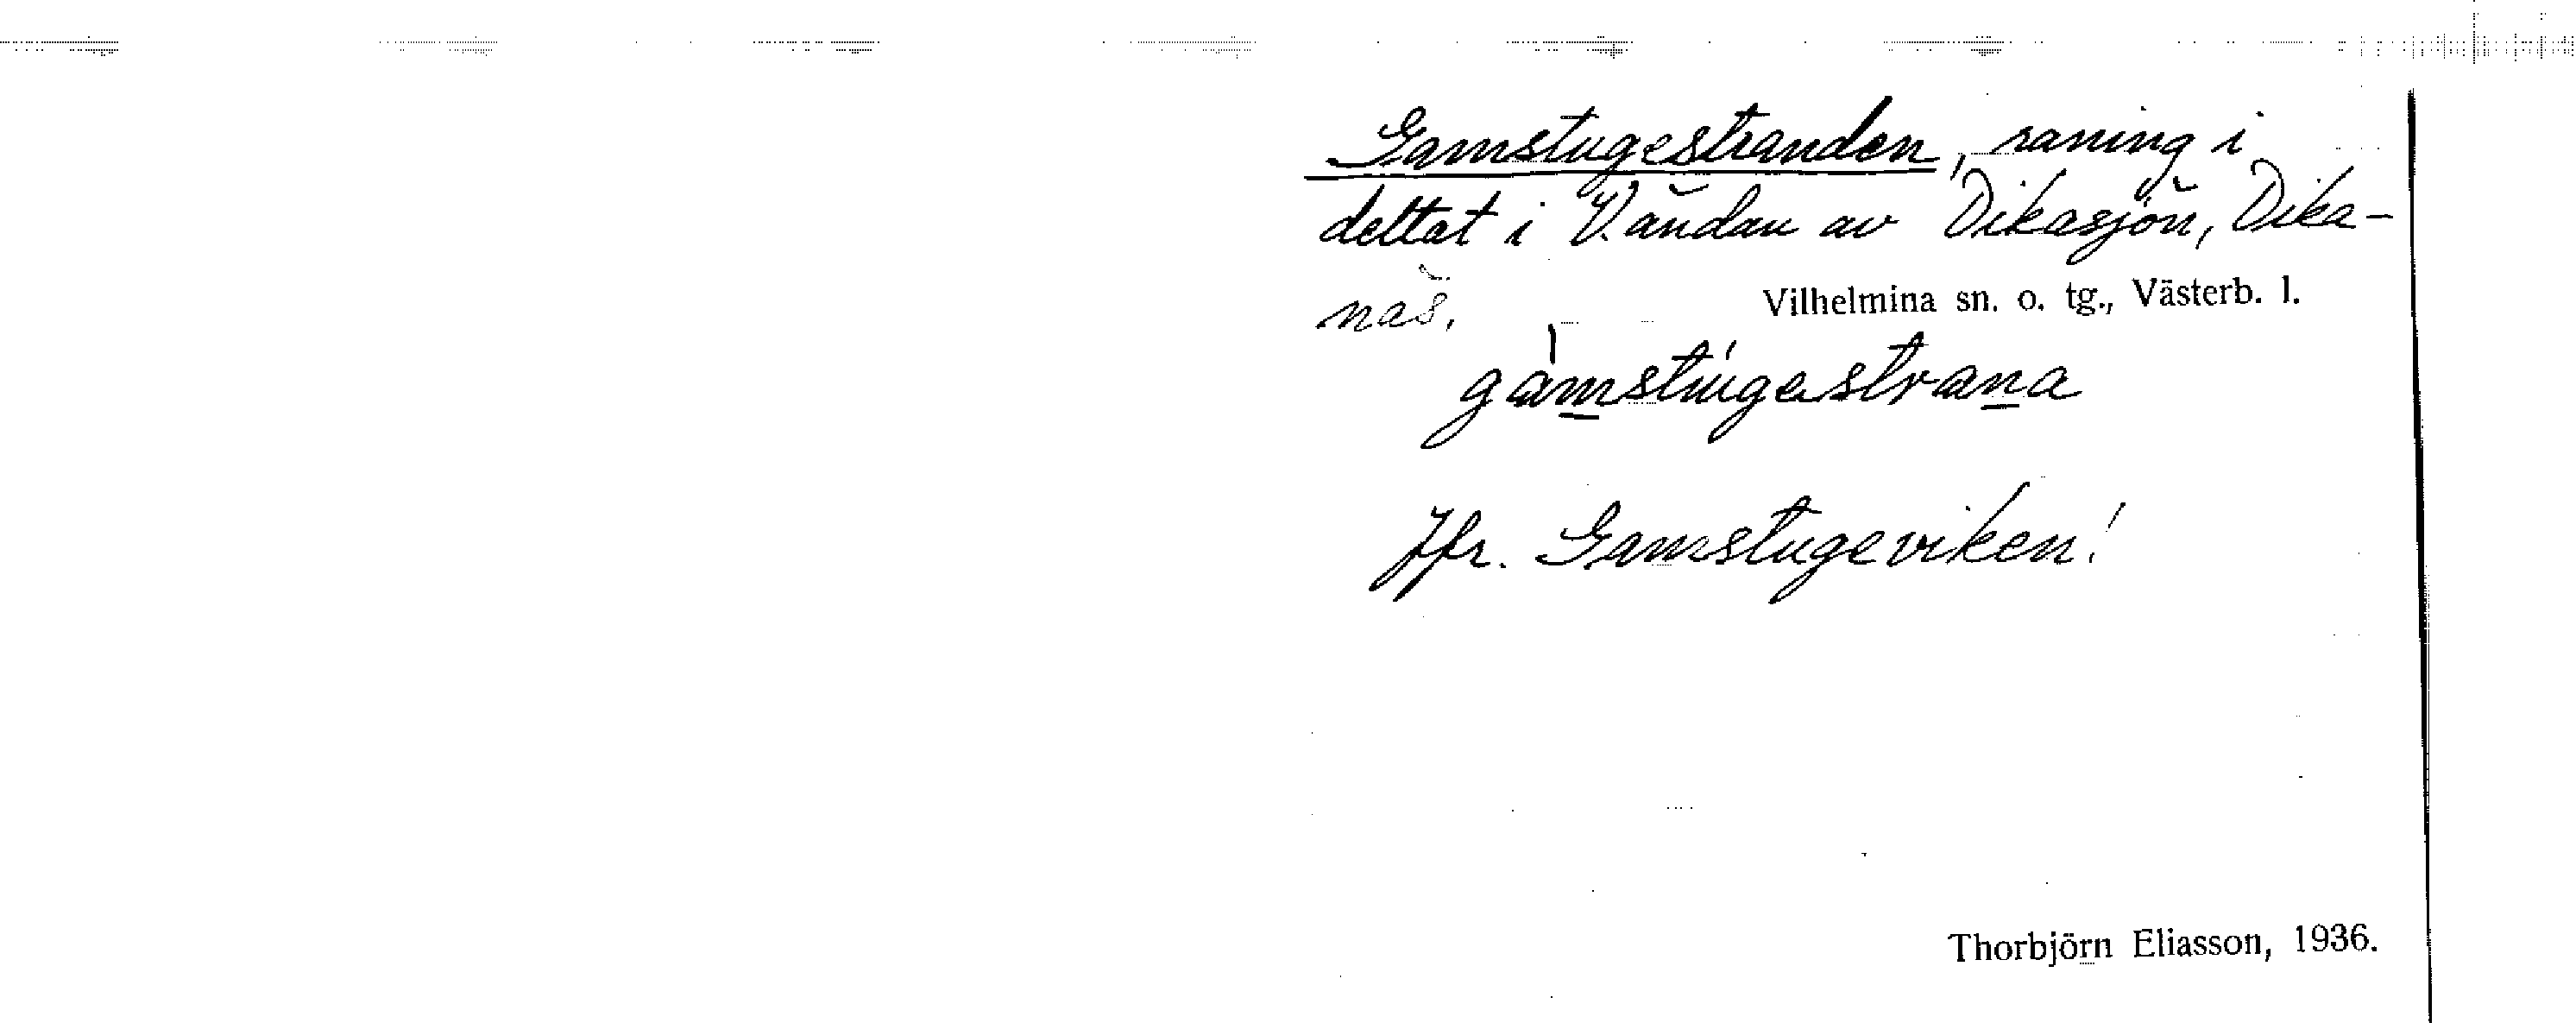 Gamstugestranden, raning i
deltat i V. ändan av Dikasjön, Dika-
näs.
Vilhelmina sn. o. tg., Västerb. l.
gàmstúgestrana
Jfr. Gamstugeviken!
Thorbjörn Eliasson, 1936.